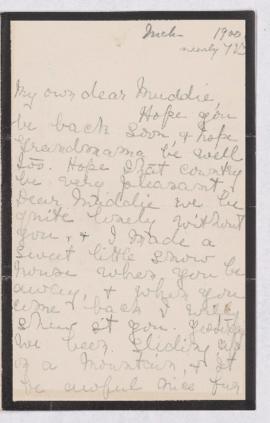 Dick 1900
nearly 7 1/2
My own dear Muddie
Hope you
be back soon & hope
Grandmama be well
too. Hope that country
be very pleasant
Dear Muddie we be
quite lonely without
you, & I made a
sweet little snow
house when you be
away & when you
come back I will
show it you.
we been sliding
on a mountain, & it
be awful nice fun